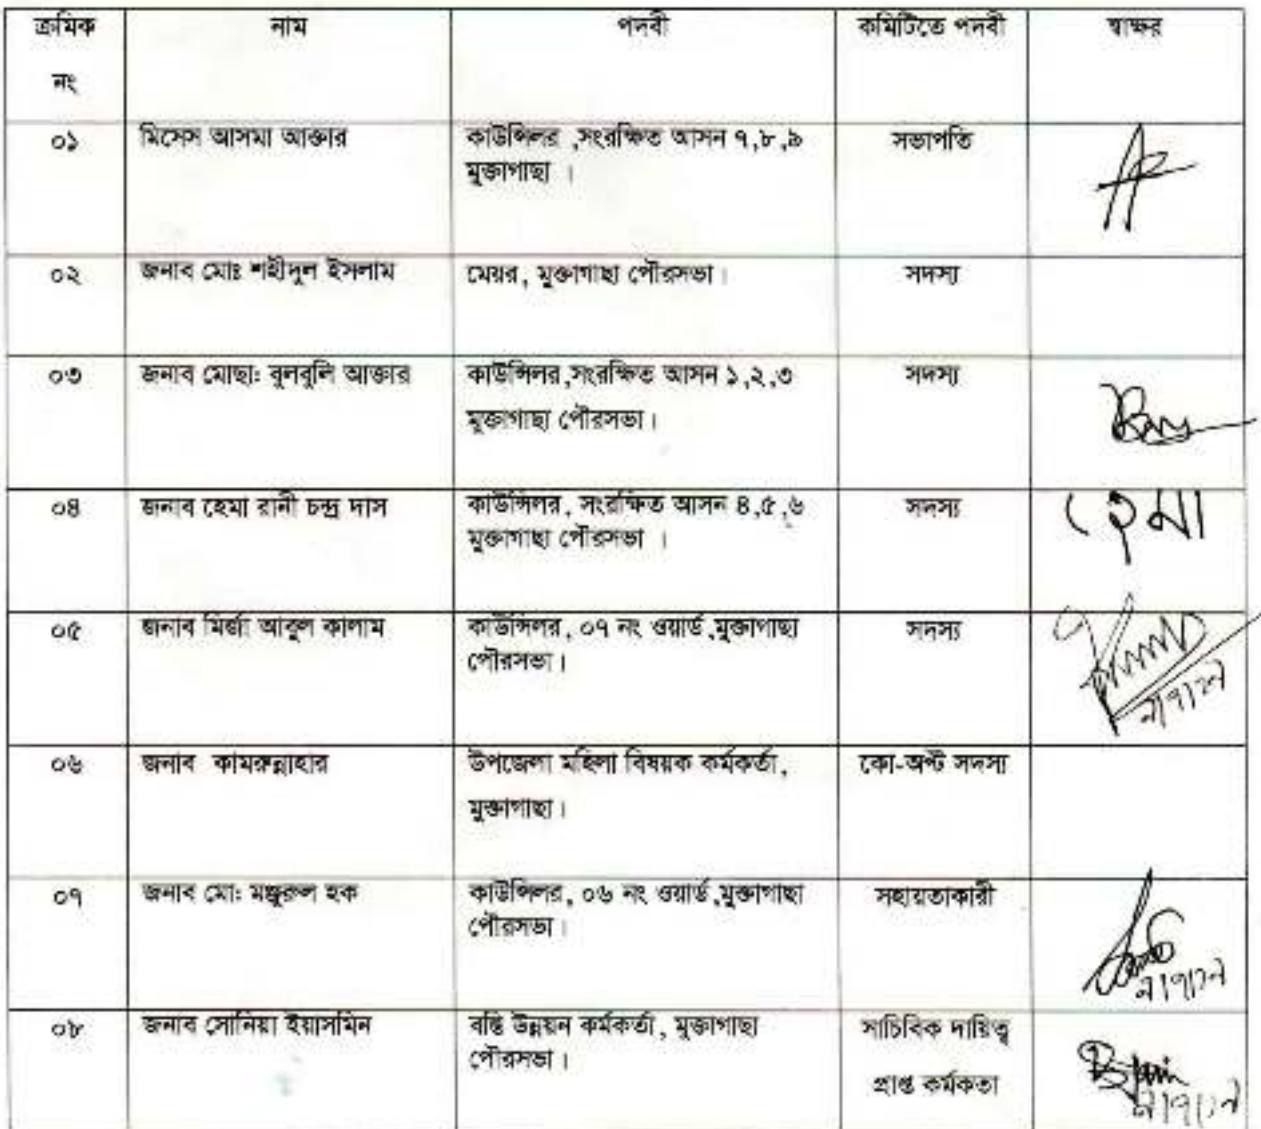 ক্রমিক নং নাম পদবী কমিটিতে পদবী স্বাক্ষর
০১ মিসেস আসমা আক্তার কাউন্সিলর ,সংরক্ষিত আসন ৭,৮,৯ সভাপতি
মুক্তাগাছা ।
০২ জনাব মোঃ শহীদুল ইসলাম মেয়র, মুক্তাগাছা পৌরসভা। সদস্য
০৩ জনাব মোছা: বুলবুলি আক্তার কাউন্সিলর,সংরক্ষিত আসন ১,২,৩ সদস্য
মুক্তাগাছা পৌরসভা।
০৪ জনাব হেমা রানী চন্দ্র দাস কাউন্সিলর, সংরক্ষিত আসন ৪,৫,৬ সদস্য হেমা
মুক্তাগাছা পৌরসভা ।
০৫ জনাব মির্জা আবুল কালাম কাউন্সিলর, ০৭ নং ওয়ার্ড,মুক্তাগাছা সদস্য
পৌরসভা।
০৬ জনাব কামরুন্নাহার উপজেলা মহিলা বিষয়ক কর্মকর্তা, কো-অপ্ট সদস্য
মুক্তাগাছা।
০৭ জনাব মো: মঞ্জুরুল হক কাউন্সিলর, ০৬ নং ওয়ার্ড,মুক্তাগাছা সহায়তাকারী
পৌরসভা।
০৮ জনাব সোনিয়া ইয়াসমিন বস্তি উন্নয়ন কর্মকর্তা, মুক্তাগাছা সাচিবিক দায়িত্ব
পৌরসভা। প্রাপ্ত কর্মকতা